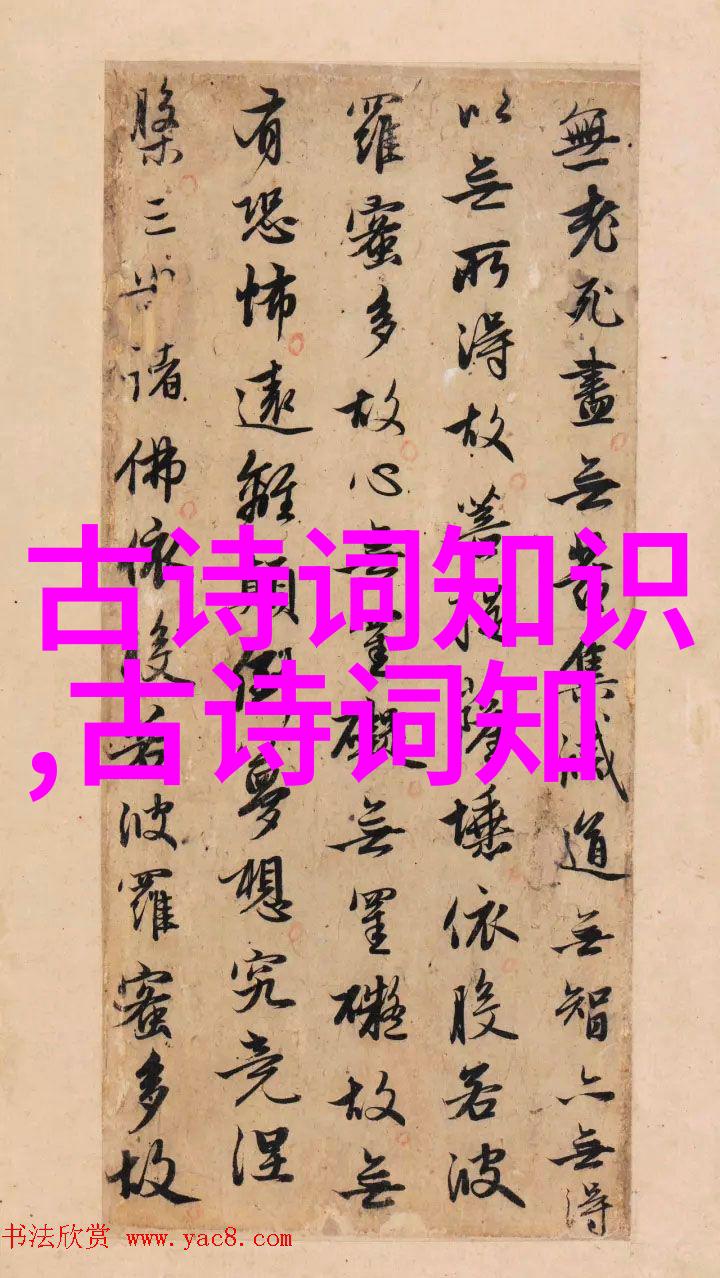 無老死盡無苦集滅道無智亦無得
以無所得故菩提薩埵依般若波
羅蜜多故心無罣礙無罣礙故無
有恐怖遠離顛倒夢想究竟涅
槃三世諸佛依般若波羅蜜多故
古诗词知识
,古诗词知
书法欣赏 www.yac8.com